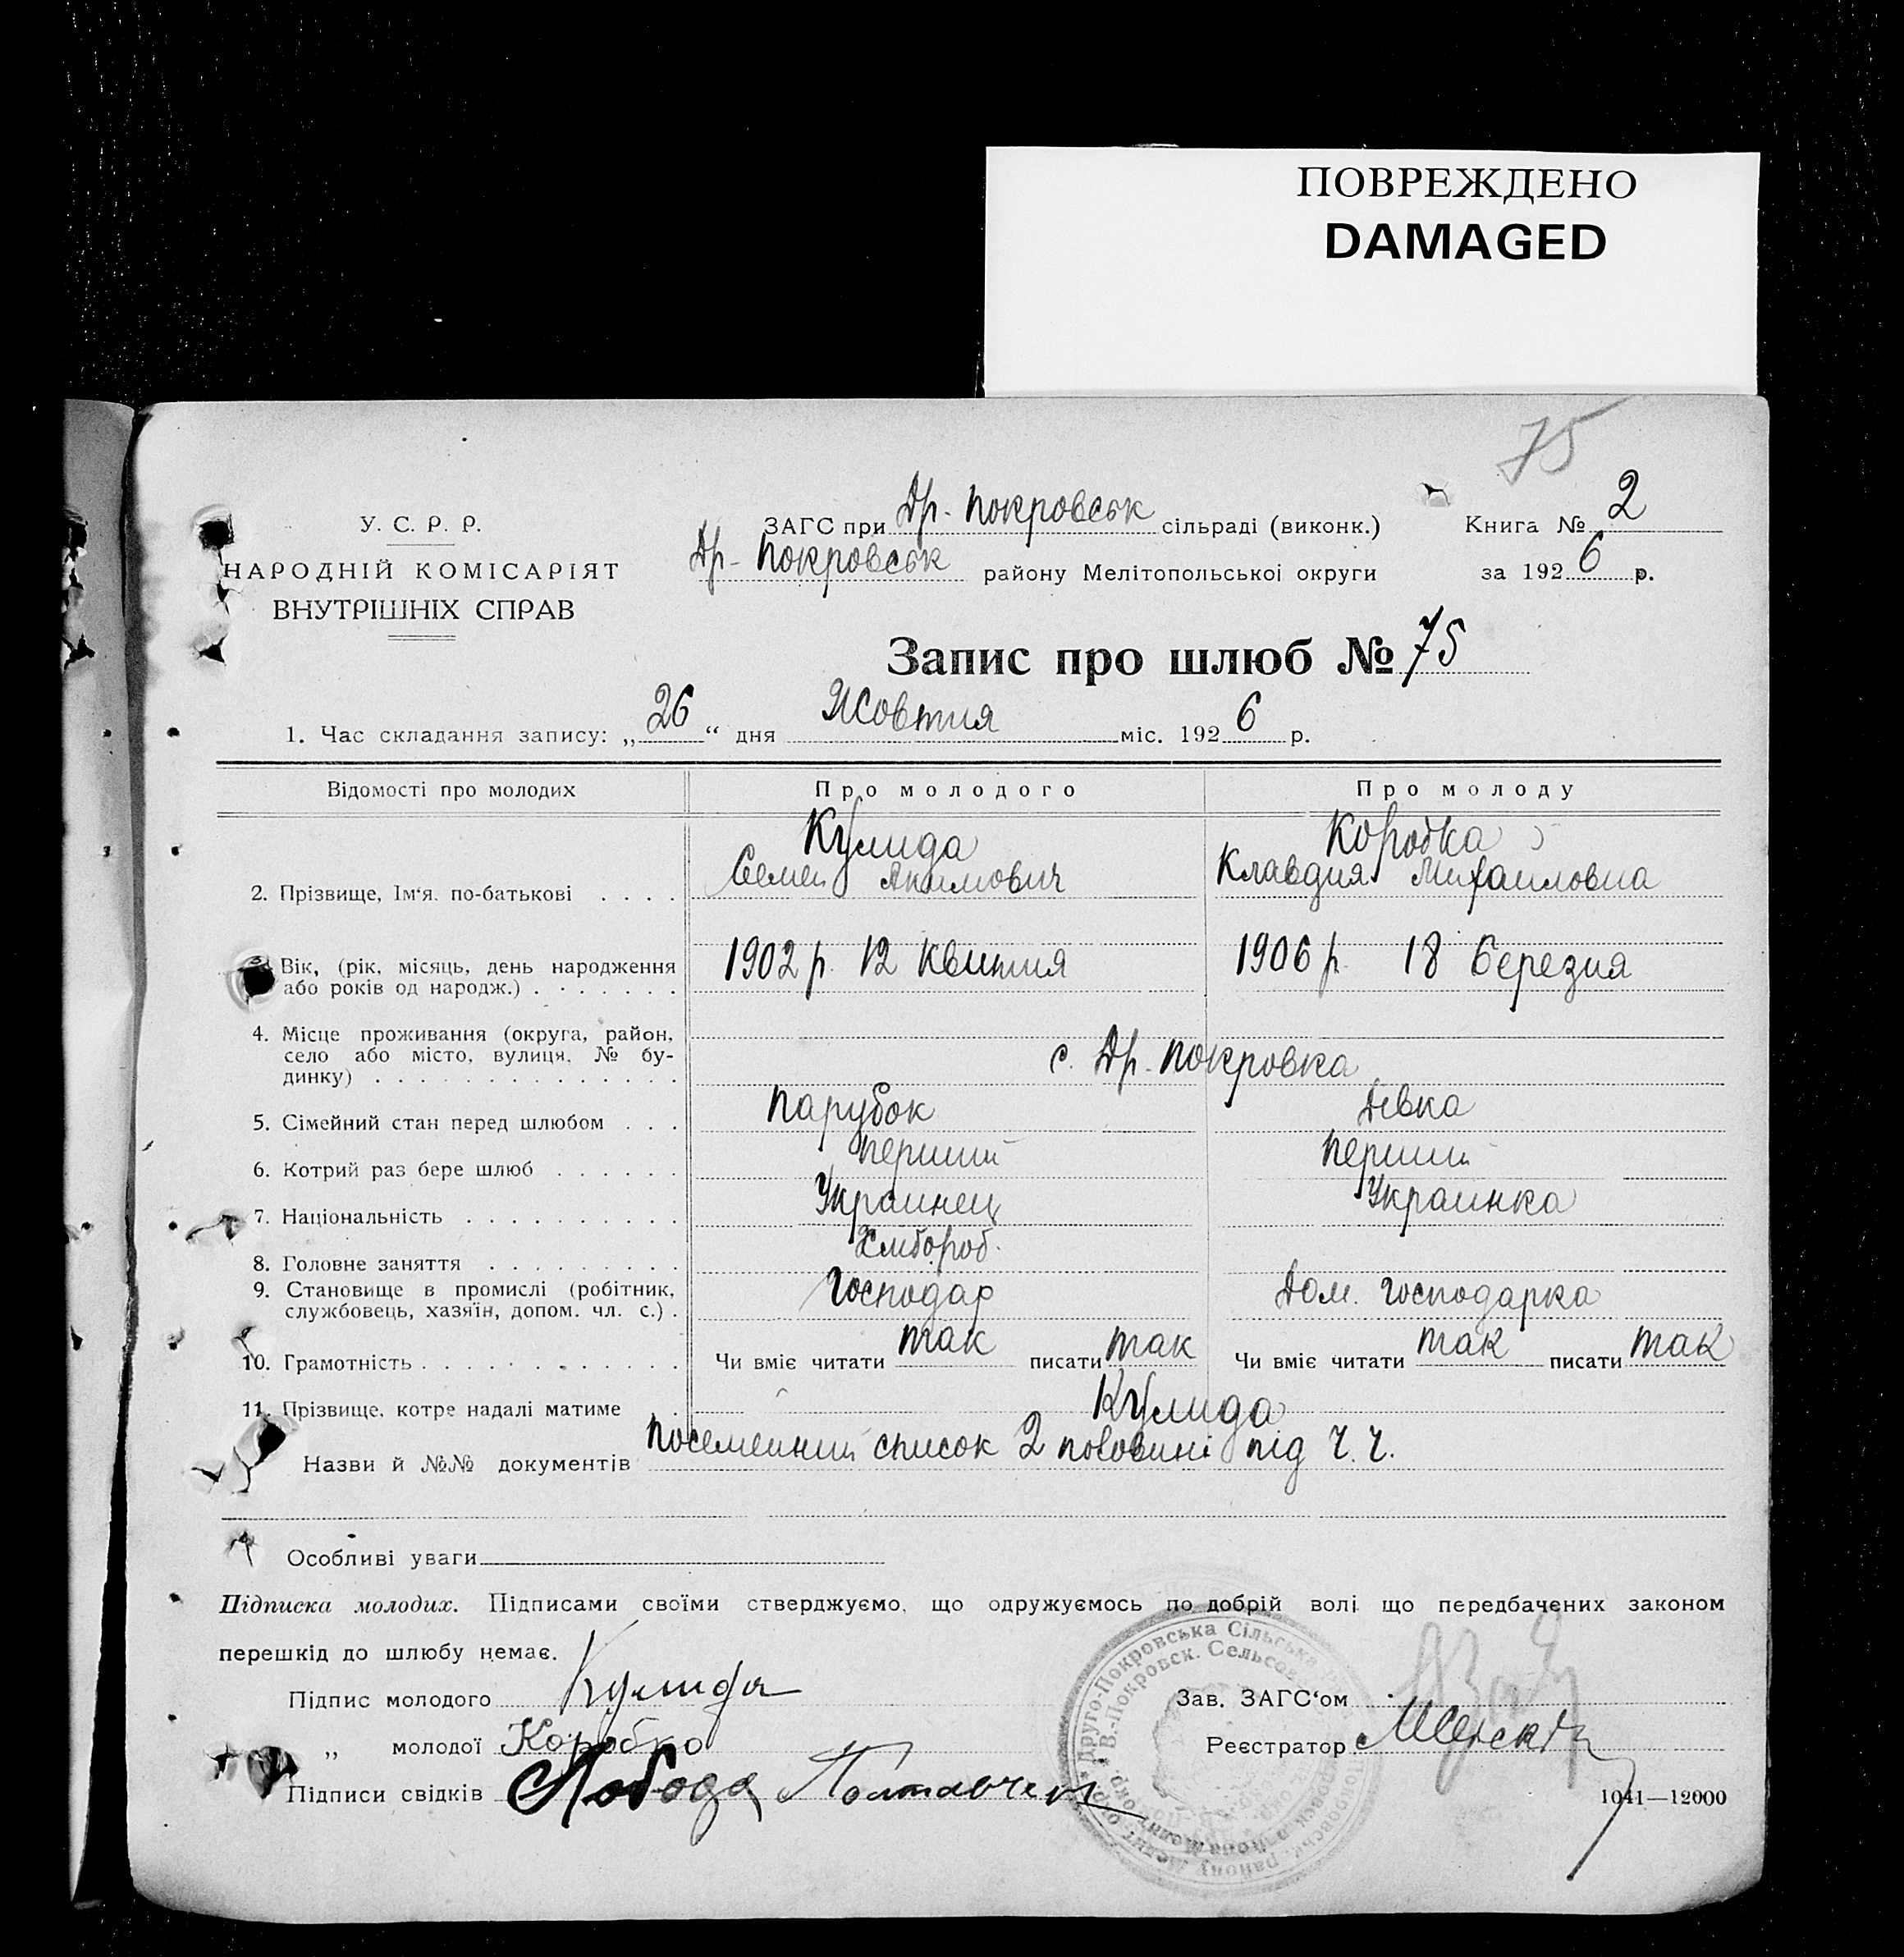 ПОВРЕЖДЕНО
DAMAGED
75
У. С. Р. Р.
НАРОДНІЙ КОМІСАРІЯТ
ВНУТРІШНІХ СПРАВ
ЗАГС при Др. Покровськ сільраді (виконк.)
Книга № 2
Др. Покровськ району Мелітопольської округи
за 1926 р.
Запис про шлюб № 75
1. Час складання запису: „26“ дня Жовтня міс. 1926 р.
Відомості про молодих
Про молодого
Про молоду
2. Прізвище, Ім‘я, по-батькові . . . .
Кулида
Семен Акимович
Коробка
Клавдия Михаиловна
3. Вік, (рік, місяць, день народження
або років од народж.) . . . . . . .
1902 р. 12 Квитня
1906 р. 18 Березня
4. Місце проживання (округа, район,
село або місто, вулиця, № бу-
динку) . . . . . . . . . . . . . .
с. Др. Покровка
5. Сімейний стан перед шлюбом . . .
Парубок
Девка
6. Котрий раз бере шлюб . . . . . .
перший
перший
7. Національність . . . . . . . . . .
Украинец
Украинка
8. Головне заняття . . . . . . . . .
Хлибороб.
9. Становище в промислі (робітник,
службовець, хазяїн, допом. чл. с.) .
Господар
Дом. господарка
10. Грамотність . . . . . . . . . . . .
Чи вміє читати так писати так
Чи вміє читати так писати так
11. Прізвище, котре надалі матиме
Кулида
Назви й №№ документів Посемейний список 2 половині під Ч. Ч.
Особливі уваги
Підписка молодих. Підписами своїми стверджуємо, що одружуємось по добрій волі що передбачених законом
перешкід до шлюбу немає.
Підпис молодого Кулида
„ молодої Коробко
Підписи свідків Лобода
Зав. ЗАГС‘ом
Реєстратор
1041—12000
Друго-Покровська Сільська
В.-Покровск. Сельсов